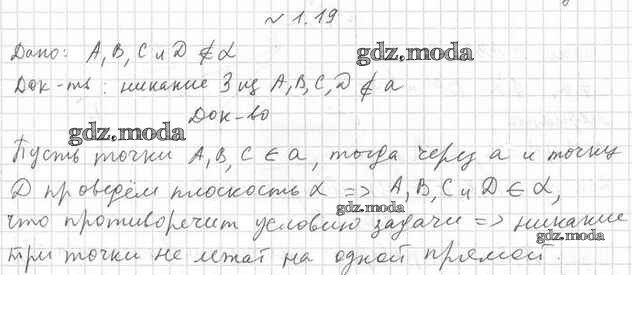 № 1.19
Дано: A, B, C и D ∉ α
gdz.moda
Док-ть: никакие 3 из A, B, C, D ∉ a
Док-во
gdz.moda
Пусть точки A, B, C ∈ a, тогда через a и точку
D проведём плоскость α => A, B, C и D ∈ α,
gdz.moda
что противоречит условию задачи => никакие
gdz.moda
три точки не лежат на одной прямой.